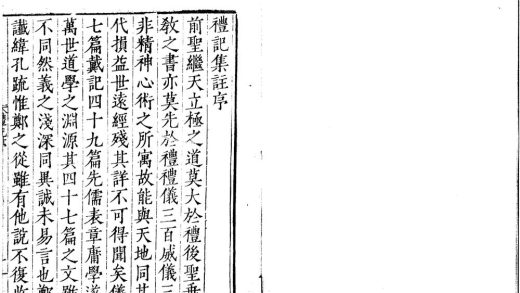 禮記集註序
前聖繼天立極之道莫大於禮後聖垂
敎之書亦莫先於禮禮儀三百威儀三
非精神心術之所寓故能與天地同其
代損益世遠經殘其詳不可得聞矣儀
七篇戴記四十九篇先儒表章庸學遂
萬世道學之淵源其四十七篇之文雖
不同然義之淺深同異誠未易言也鄭
讖緯孔疏惟鄭之從雖有他說不復收